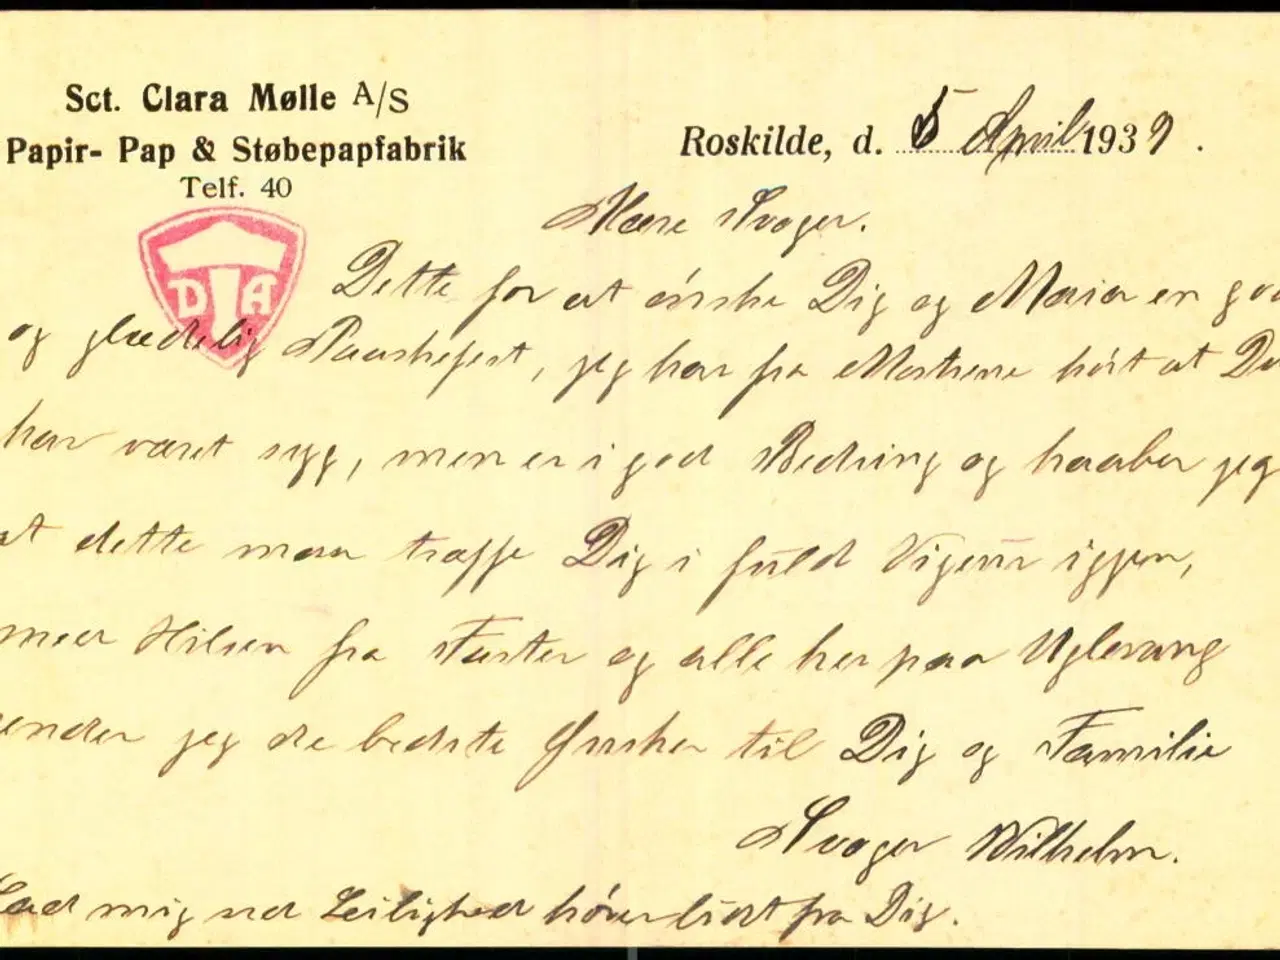 Sct. Clara Mølle A/S
Papir- Pap & Støbepapfabrik
Telf. 40
Roskilde, d. 5 April 1939.
DA
Kære Svoger.
Dette for at ønske Dig og Maria en god
og glædelig Paaskefest, jeg har fra hørt at Du
har været syg, men er i god Bedring og haaber jeg
at dette maa træffe Dig i fuld Vigeur igjen,
med Hilsen fra Faster og alle her paa Uglevang
sender jeg de bedste Ønsker til Dig og Familie
Svoger Wilhelm.
Lad mig ved Leilighed høre lidt fra Dig.